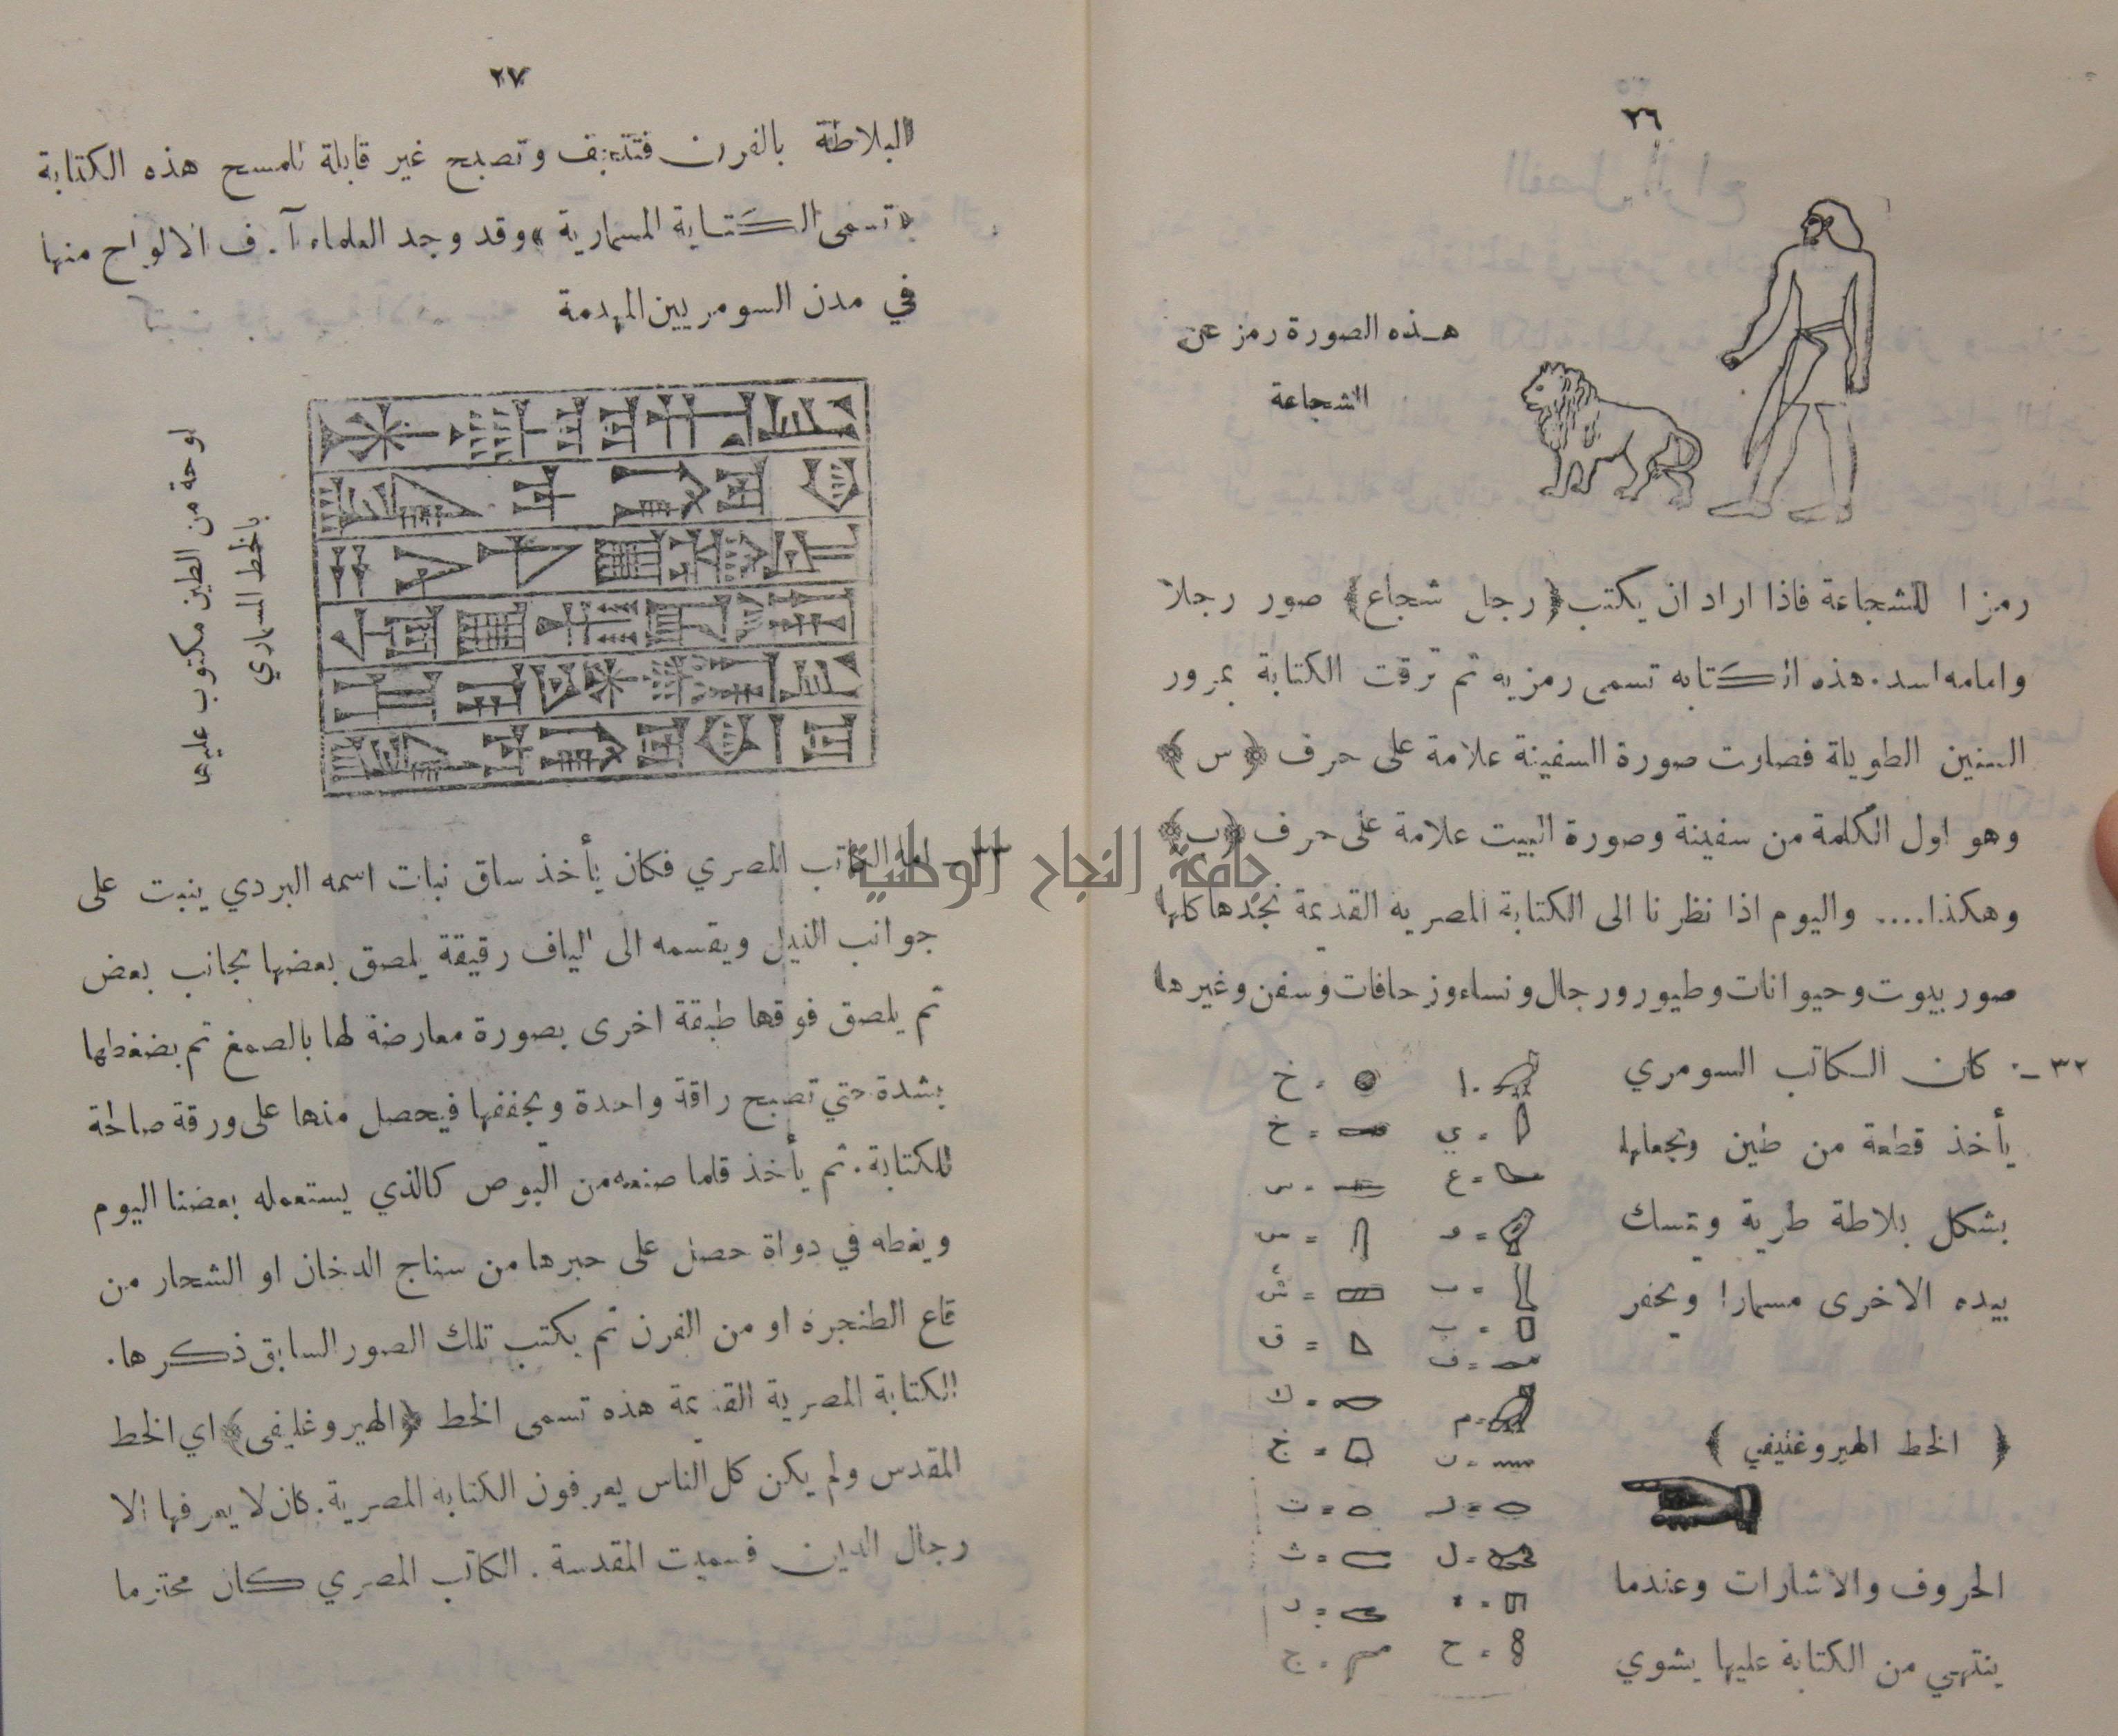 ٢٦
هـذه الصورة رمز عن
الشجاعة
رمزا للشجاعة فاذا اراد ان يكتب ﴿رجل شجاع﴾ صور رجلا
وامامه اسد. هذه الكتابه تسمى رمزيه ثم ترقت الكتابة بمرور
السنين الطويلة فصارت صورة السفينة علامة على حرف ﴿س﴾
وهو اول الكلمة من سفينة وصورة البيت علامة على حرف ﴿ب﴾
وهكذا.... واليوم اذا نظرنا الى الكتابة المصريه القديمة نجدها كلها
صور بيوت وحيوانات وطيور ورجال ونساء وزحافات وسفن وغيرها
٣٢ - كان الكاتب السومري
يأخذ قطعة من طين ويجعلها
بشكل بلاطة طرية ويمسك
بيده الاخرى مسمارا ويحفر
﴿ الخط الهيروغليفي ﴾
الحروف والاشارات وعندما
ينتهي من الكتابة عليها يشوي
ا
= ي
= ع
= و
= ب
= ب
= ف
= م
= ن
= ر
= ل
= ح
= خ
= خ
= س
= س
= ش
= ق
= ك
= خ
= ت
= ث
= د
= ج
٢٧
البلاطة بالفرن فتنشف وتصبح غير قابلة للمسح هذه الكتابة
«تسمى الكتابة المسمارية» وقد وجد العلماء آلاف الالواح منها
في مدن السومريين المهدمة
لوحة من الطين مكتوب عليها
بالخط المسماري
٣٣ - اما الكاتب المصري فكان يأخذ ساق نبات اسمه البردي ينبت على
جوانب النيل ويقسمه الى الياف رقيقة يلصق بعضها بجانب بعض
ثم يلصق فوقها طبقة اخرى بصورة معارضة لها بالصمغ ثم يضغطها
بشدة حتي تصبح راقة واحدة ويجففها فيحصل منها على ورقة صالحة
للكتابة. ثم يأخذ قلما صنعه من البوص كالذي يستعمله بعضنا اليوم
ويغطه في دواة حصل على حبرها من سناج الدخان او الشحار من
قاع الطنجره او من الفرن ثم يكتب تلك الصور السابق ذكرها.
الكتابة المصرية القديمة هذه تسمى الخط ﴿الهيروغليفي﴾ اي الخط
المقدس ولم يكن كل الناس يعرفون الكتابه المصرية. كان لا يعرفها الا
رجال الدين فسميت المقدسة. الكاتب المصري كان محترما
جامعة النجاح الوطنية